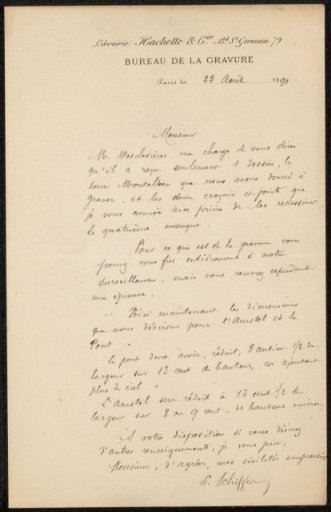 Librairie Hachette & Cie, Bd St Germain, 79
BUREAU DE LA GRAVURE
Paris le 24 Août 189
Monsieur
M. Desclosières me charge de vous dire
qu'il a reçu seulement 1 dessin, la
tour Montalban que nous avons donné à
graver, et les deux croquis ci-joints que
je vous renvoie avec prière de les redessiner.
Le quatrième manque.
Pour ce qui est de la gravure vous
pouvez vous fier entièrement à notre
surveillance, mais vous recevrez cependant
une épreuve.
Voici maintenant les dimensions
que nous désirons pour l'Amstel et le
Pont
le pont devra avoir, réduit, 8 centim. 1/2 de
largeur sur 13 cent. de hauteur, en ajoutant
plus de ciel
L'Amstel sera réduit à 13 cent 1/2 de
largeur sur 8 ou 9 cent. de hauteur environ
A votre disposition si vous désirez
d'autres renseignements, je vous prie,
Monsieur, d'agréer, mes civilités empressées
Schiffer